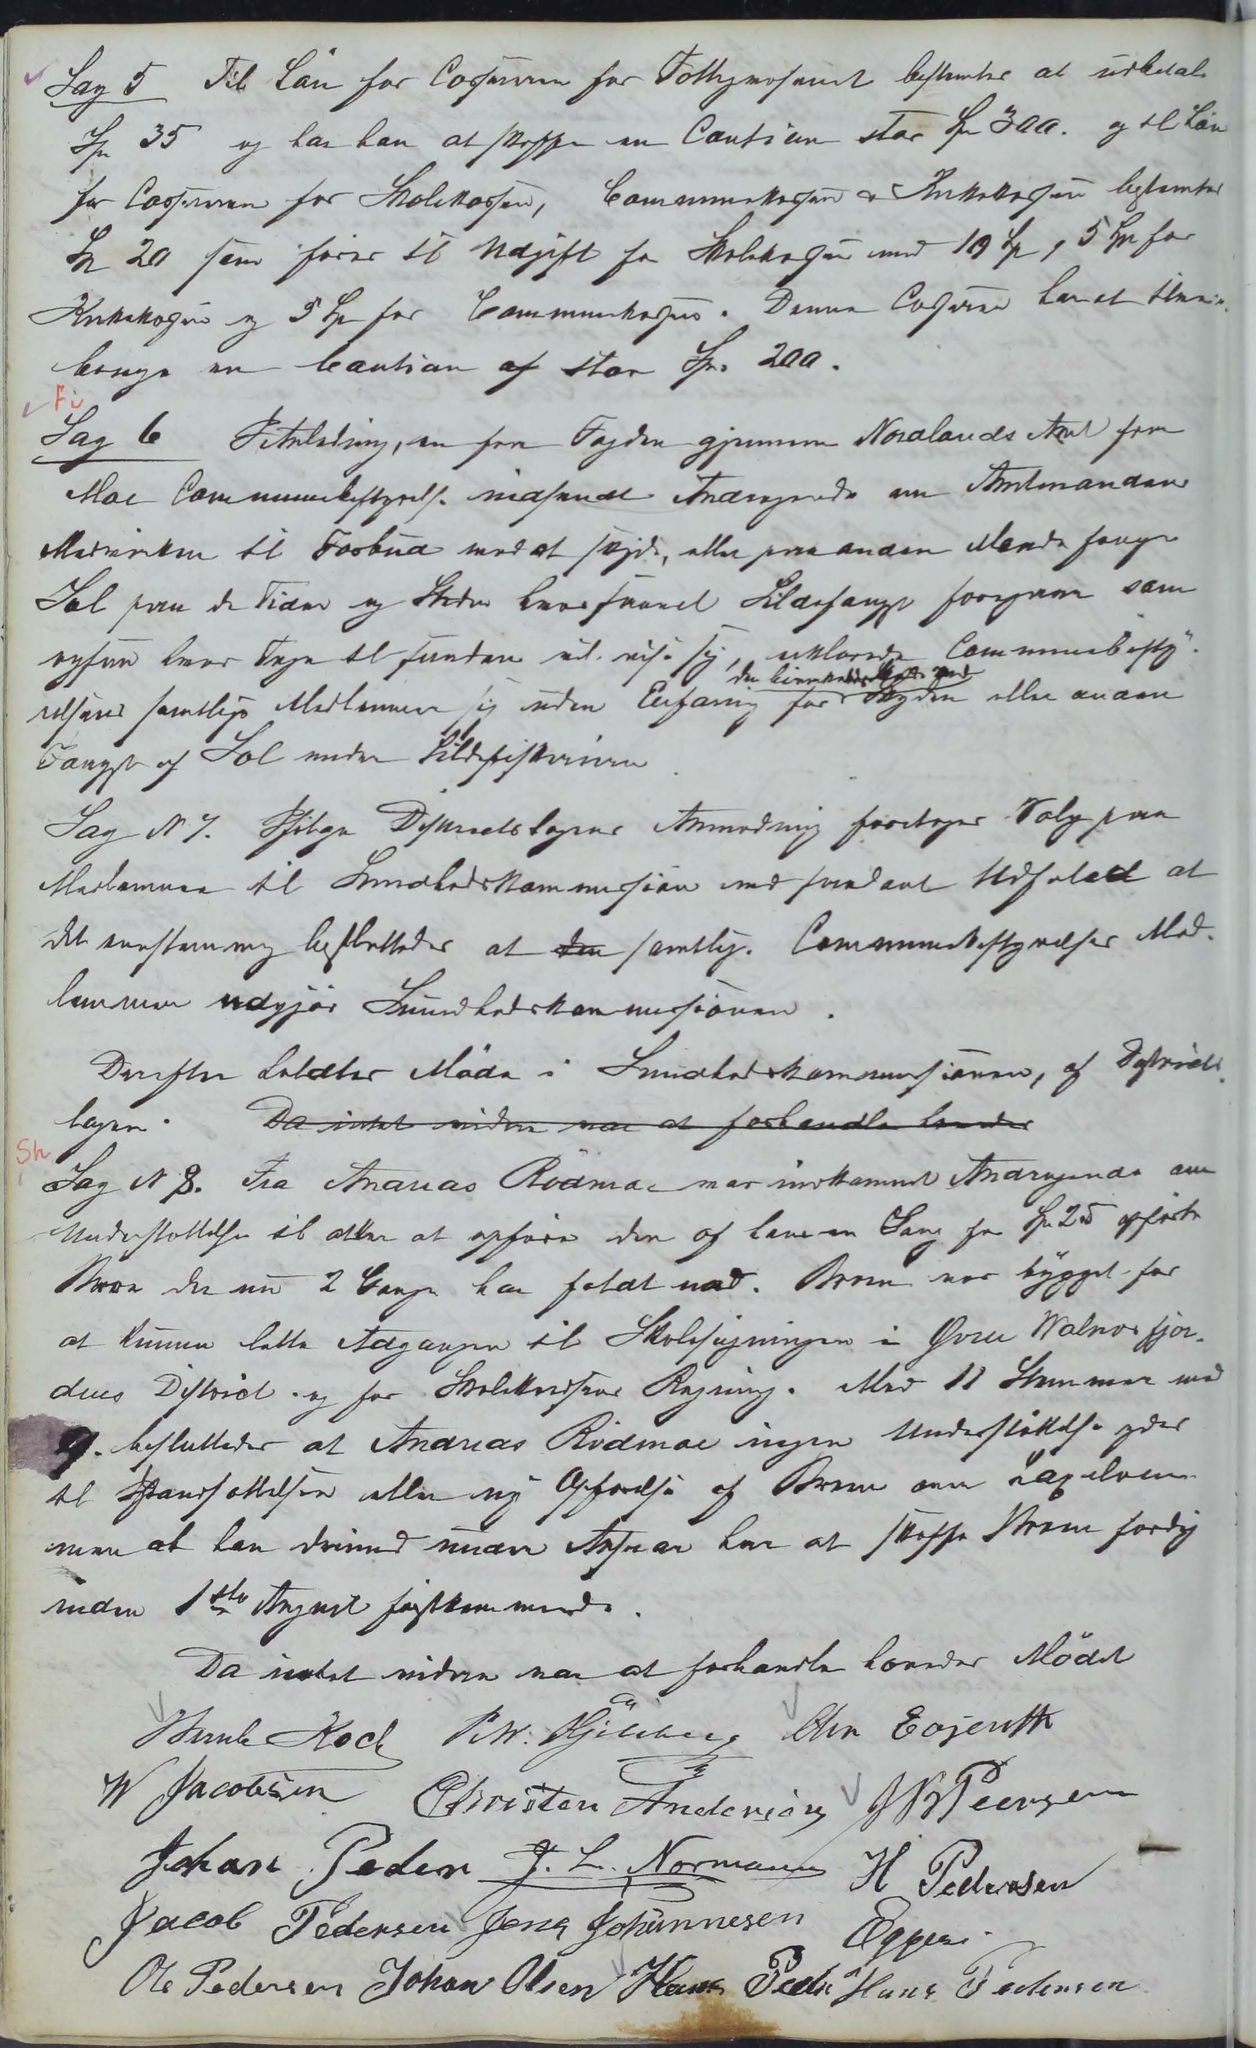 Sag 5 Til Løn for Casserer for Fattigvæsenet bestemtes at udbetale
Sp 35 og har han at skaffe en Caution stor Sp 300. og til Løn
for Casserer for Skolekassen, Communekassen & Kirkekassen bestemtes
Sp 20 som føres til Udgift for Skolekassen med 10 Sp, 5 Sp for
Kirkekassen og 5 Sp for Communekassen. Denne Casserer har at tilveie-
bringe en Caution af stor Sp. 200.
Fi
Sag 6 I Anledning, en fra Fogden gjennem Nordlands Amt fra
Moe Communebestyrelse indsendt Andragende om Amtmandens
Medvirken til Forbud mod at skyde, eller paa anden Maade fange
Sæl paa de Tider og Steder hvorsomhelst Sildefangst foregaar som
ogsaa hvor Tegn til saadan vil vise sig, erklærede Communebesty-
relsens samtlige Medlemmer sig uden Erfaring for Skyden eller anden
Fangst af Sæl under Sildefiskerierne
Sag N 7. Ifølge Districtslægens Anmodning foretoges Valg paa
Medlemmer til Sundhedskommission med saadant Udfald at
det eenstemmig besluttedes at den samtlige Communebestyrelses Med-
lemmer udgjør Sundhedskommissionen.
Derefter holdtes Møde i Sundhedskommissionen, af Districts-
lægen. Da intet videre var at forhandle hævedes
Sk
Sag N 8. Fra Andreas Rödmoe var indkommet Andragende om
Understøttelse til atter at opføre den af ham en Gang for Sp 25 opførte
Broe der nu 2 Gange har faldt ned. Broen var bygget for
at kunne lette Adgangen til Skolesøgningen i Øvre Walnesfjor-
dens District og for Skolekassens Regning. Med 11 Stemmer mod
9. besluttedes at Andreas Rödmoe ingen Understøttelse ydes
til Istandsættelsen eller ny Opførelse af Broen over Laxelven
men at han derimod under Ansvar har at skaffe Broen færdig
inden 1ste August førstkommende.
Da intet videre var at forhandle hævedes Mödet
Koch Chr Eojenth
W Jacobsen Christen Andersen Peersen
Johan Peder J. L. Normann H Pedersen
Jacob Pedersen Jens Johannesen
Ole Pedersen Johan Olsen Hans Peder Hans Pedersen